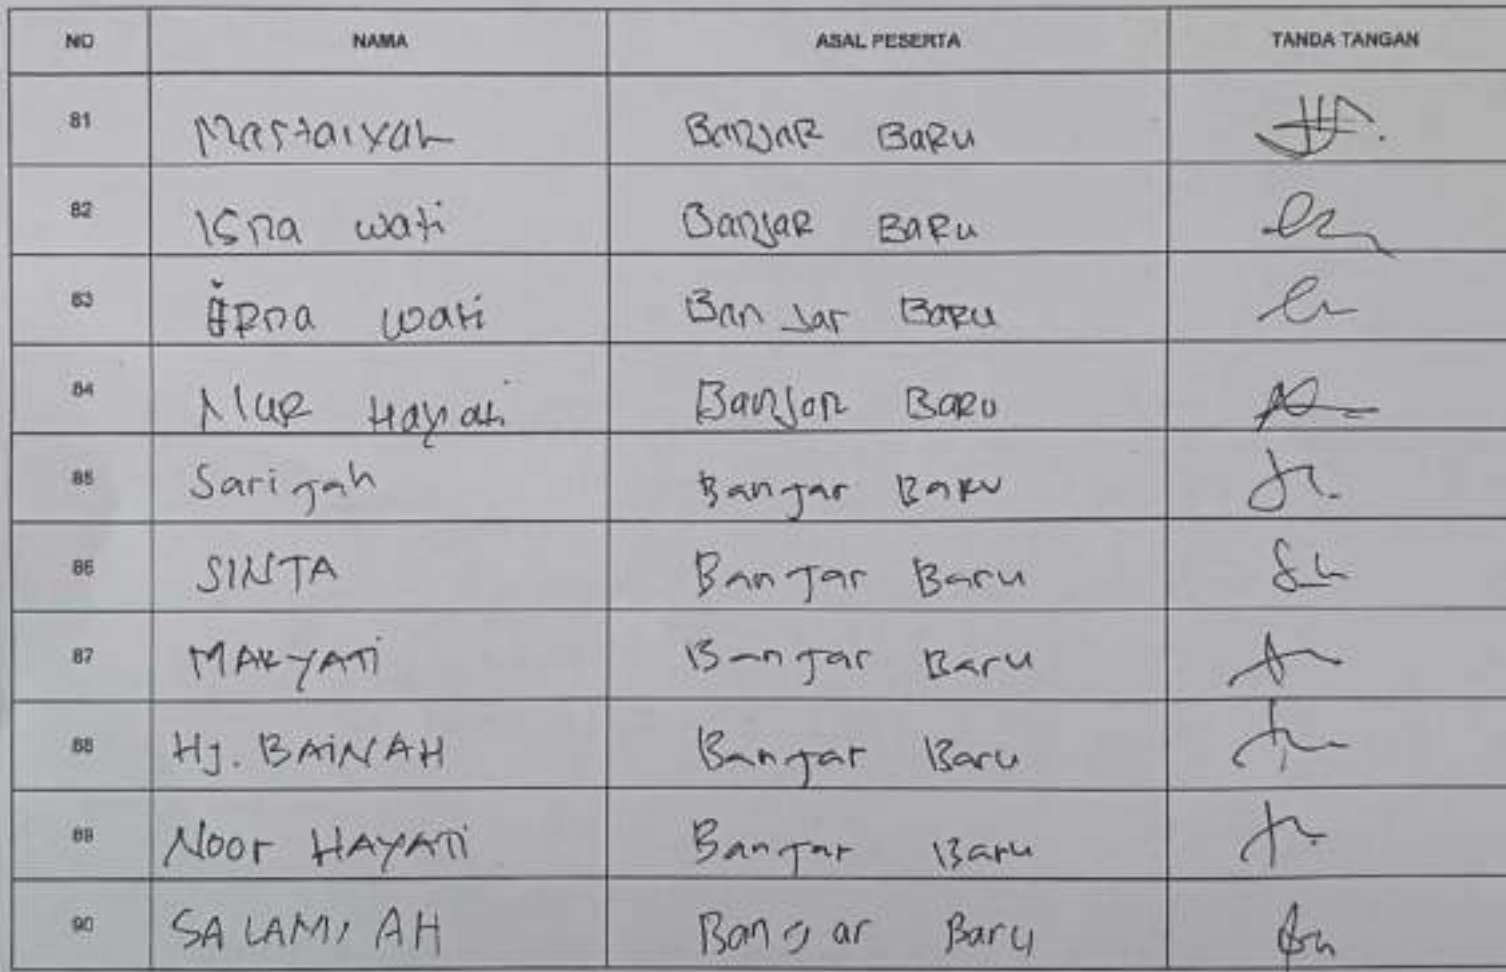 NO NAMA ASAL PESERTA TANDA TANGAN
81 Mastaiyah Banjar Baru
82 Isna wati Banjar Baru
83 Erna wati Banjar Baru
84 Nur Hayati Banjar Baru
85 Sarijah Banjar Baru
86 SINTA Banjar Baru
87 MARYATi Banjar Baru
88 Hj. BAiNAH Banjar Baru
89 Noor HAYATi Banjar Baru
90 SALAMiAH Banjar Baru